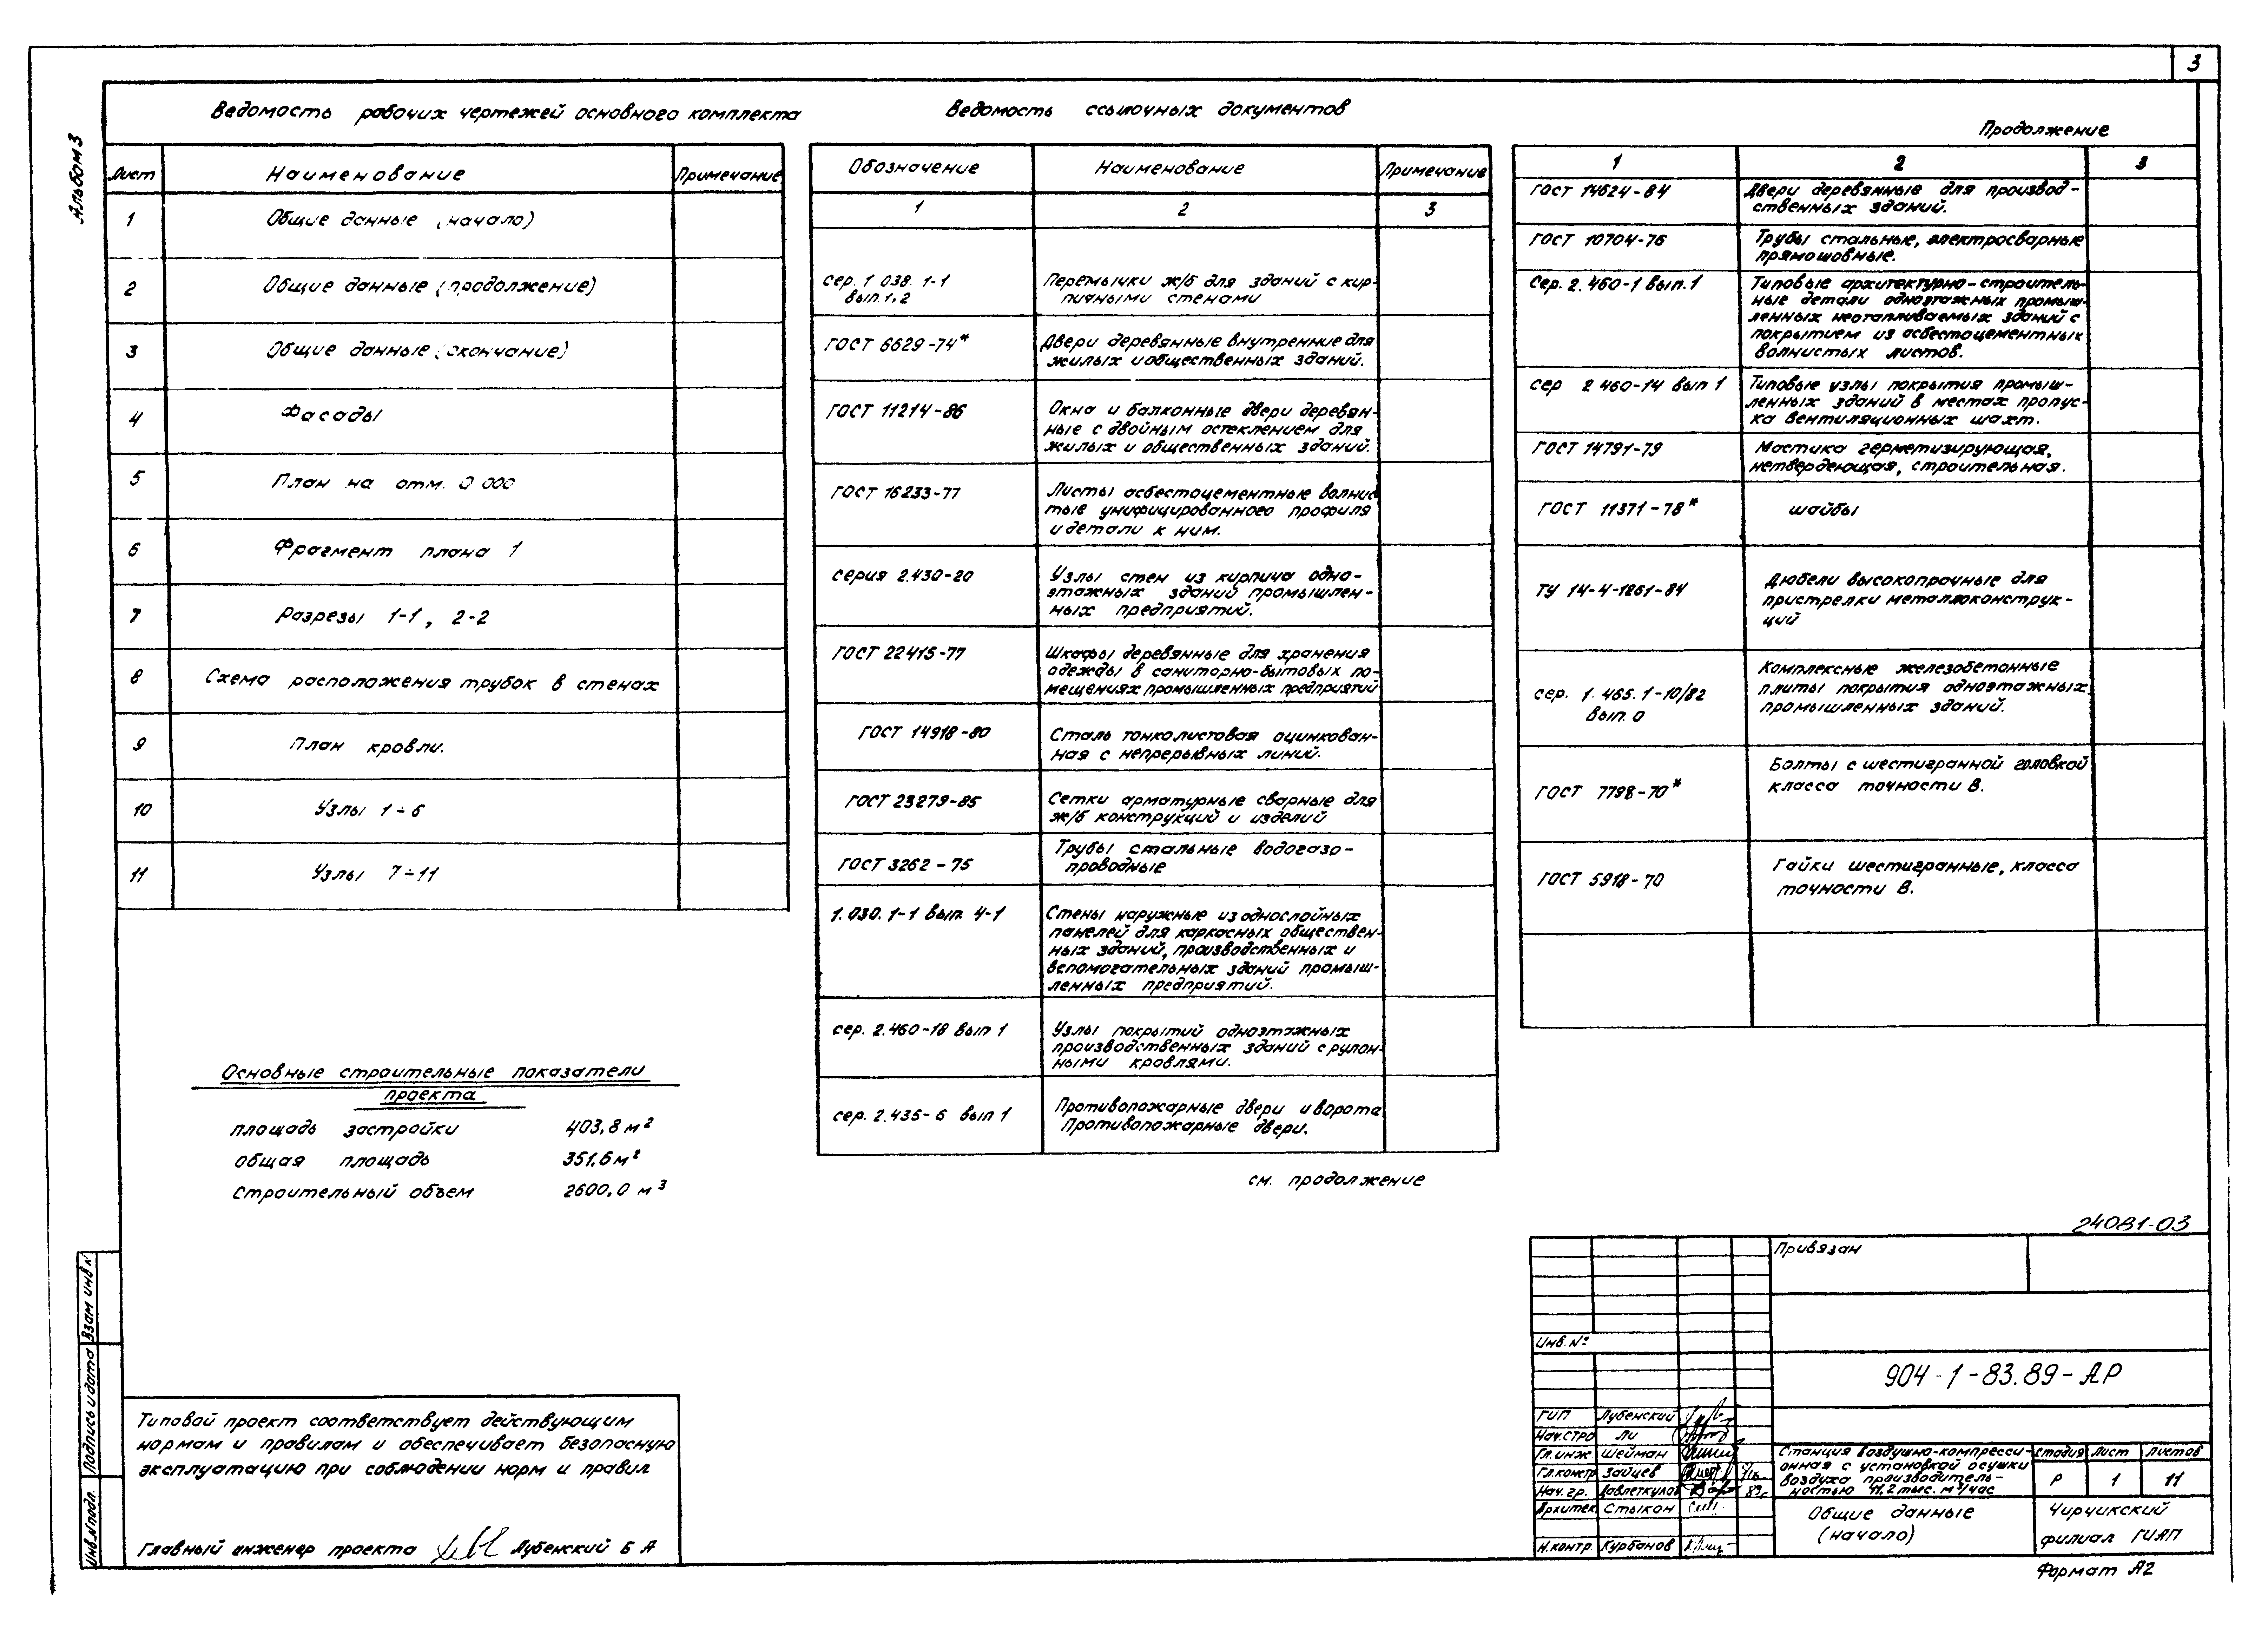 3
Альбом 3
Ведомость рабочих чертежей основного комплекта
Лист Наименование Примечание
1 Общие данные (начало)
2 Общие данные (продолжение)
3 Общие данные (окончание)
4 Фасады
5 План на отм. 0.000
6 Фрагмент плана 1
7 Разрезы 1-1, 2-2
8 Схема расположения трубок в стенах
9 План кровли.
10 Узлы 1÷6
11 Узлы 7÷11
Основные строительные показатели
проекта
площадь застройки 403,8 м²
общая площадь 351,6 м²
Строительный объем 2600,0 м³
Ведомость ссылочных документов
Обозначение Наименование Примечание
1 2 3
Сер. 1 038. 1-1 Перемычки ж/б для зданий с кир-
вып. 1, 2 пичными стенами
ГОСТ 6629-74* Двери деревянные внутренние для
жилых и общественных зданий.
ГОСТ 11214-86 Окна и балконные двери деревян-
ные с двойным остеклением для
жилых и общественных зданий.
ГОСТ 16233-77 Листы асбестоцементные волнис
тые унифицированного профиля
и детали к ним.
серия 2.430-20 Узлы стен из кирпича одно-
этажных зданий промышлен-
ных предприятий.
ГОСТ 22415-77 Шкафы деревянные для хранения
одежды в саниторно-бытовых по-
мещениях промышленных предприятий
ГОСТ 14918-80 Сталь тонколистовая оцинкован-
ная с непрерывных линий.
ГОСТ 23279-85 Сетки арматурные сварные для
ж/б конструкций и изделий
Трубы стальные водогазо-
ГОСТ 3262-75 проводные
1.030.1-1 вып. 4-1 Стены наружные из однослойных
панелей для каркасных обществен-
ных зданий, производственных и
вспомогательных зданий промыш-
ленных предприятий.
сер. 2.460-18 вып 1 Узлы покрытий одноэтажных
производственных зданий с рулон-
ными кровлями.
сер. 2.435-6 вып 1 Противопожарные двери и ворота
Противопожарные двери.
см. продолжение
Продолжение
1 2 3
ГОСТ 14624-84 Двери деревянные для производ-
ственных зданий.
ГОСТ 10704-76 Трубы стальные, электросварные
прямошовные.
Сер. 2.460-1 вып. 1 Типовые архитектурно-строитель-
ные детали одноэтажных промыш-
ленных неотапливаемых зданий с
покрытием из асбестоцементных
волнистых листов.
сер 2 460-14 вып 1 Типовые узлы покрытия промыш-
ленных зданий в местах пропус-
ка вентиляционных шахт.
ГОСТ 14791-79 Мастика герметизирующая,
нетвердеющая, строительная.
ГОСТ 11371-78* шайбы
ТУ 14-4-1261-84 Дюбели высокопрочные для
пристрелки металлоконструк-
ций
сер. 1.465.1-10/82 Комплексные железобетонные
вып. 0 плиты покрытия одноэтажных
промышленных зданий.
ГОСТ 7798-70* Болты с шестигранной головкой
класса точности В.
ГОСТ 5918-70 Гайки шестигранные, класса
точности В.
24081-03
Привязан
Инв. №
904-1-83.89-АР
ГИП Лубенский
Нач.стро Ли
Гл.инж Шейман
Гл.констр Зайцев
Нач. гр. Давлеткулов 89г
Архитек Стыкон
Н.контр Курбанов
Станция воздушно-компресси-
онная с установкой осушки
воздуха производитель-
ностью 11,2 тыс. м³/час
стадия лист листов
Р 1 11
Общие данные
(начало)
Чирчикский
филиал ГИАП
Формат А2
Типовой проект соответствует действующим
нормам и правилам и обеспечивает безопасную
эксплуатацию при соблюдении норм и правил
Главный инженер проекта Лубенский Б А
Взам инв №
Подпись и дата
Инв.№ подл.